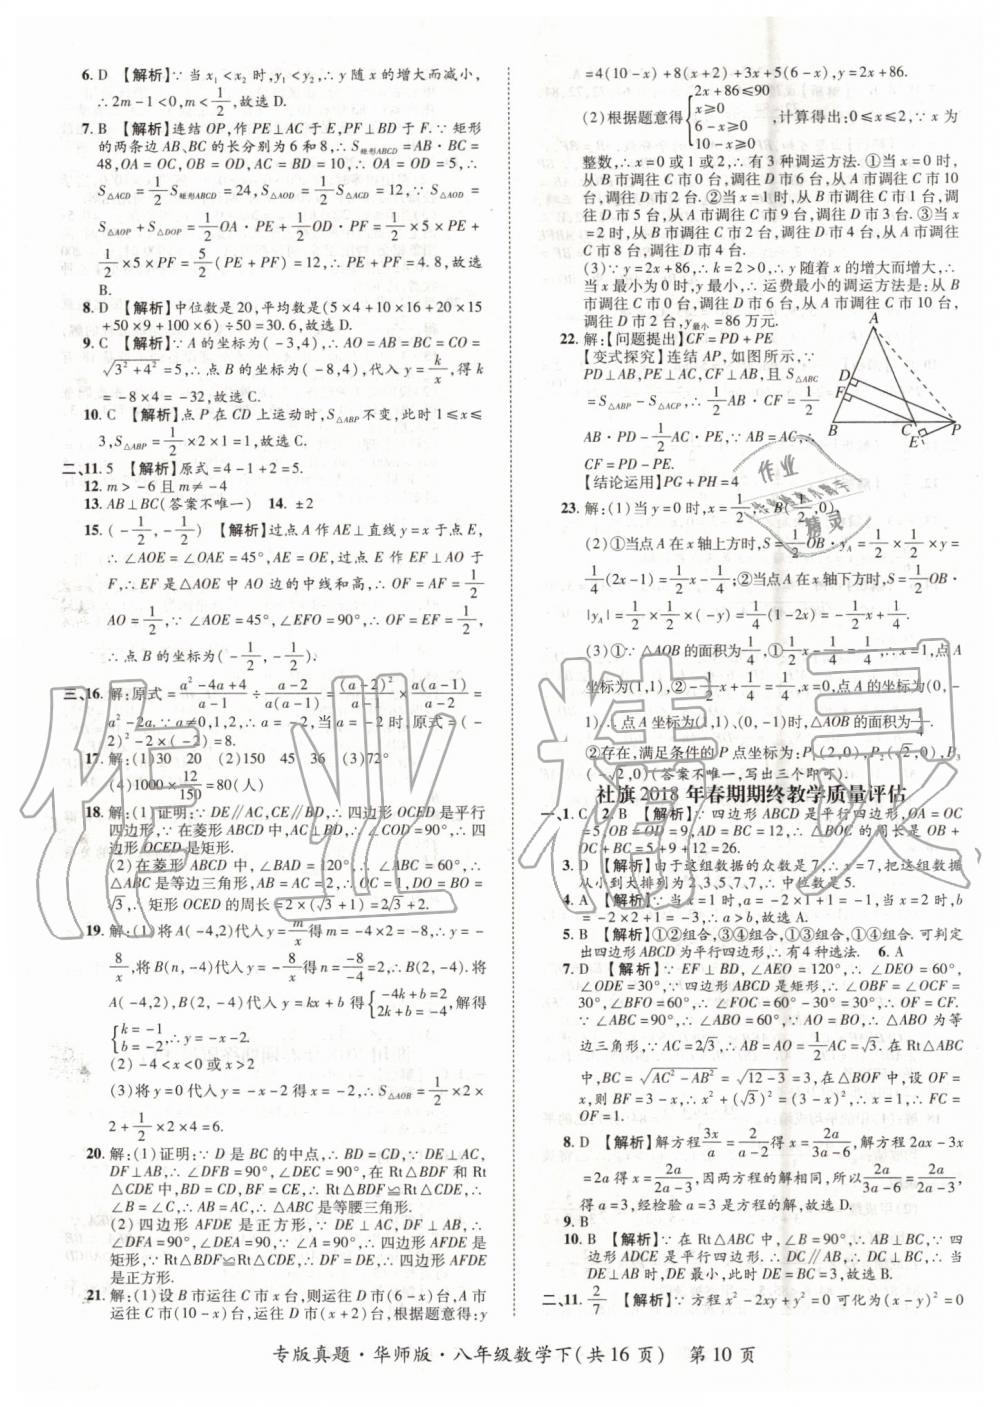 6. D 【解析】∵ 当 x₁<x₂ 时,y₁<y₂,∴ y 随 x 的增大而减小,
∴ 2m-1<0,m<1/2,故选 D.
7. B 【解析】连结 OP,作 PE⊥AC 于 E,PF⊥BD 于 F.∵ 矩形
的两条边 AB、BC 的长分别为 6 和 8,∴ S矩形ABCD=AB·BC=
48,OA=OC,OB=OD,AC=BD=10,∴ OA=OD=5,∴
S△ACD=1/2S矩形ABCD=24,S△AOD=1/2S△ACD=12,∵ S△AOD=
S△AOP+S△DOP=1/2OA·PE+1/2OD·PF=1/2×5×PE+
1/2×5×PF=5/2(PE+PF)=12,∴ PE+PF=4.8,故选
B.
8. D 【解析】中位数是20,平均数是(5×4+10×16+20×15
+50×9+100×6)÷50=30.6,故选 D.
9. C 【解析】∵ A 的坐标为(-3,4),∴ AO=AB=BC=CO=
√(3²+4²)=5,∴ 点 B 的坐标为(-8,4),代入 y=k/x,得 k
=-8×4=-32,故选 C.
10. C 【解析】点 P 在 CD 上运动时,S△ABP不变,此时 1≤x≤
3,S△ABP=1/2×2×1=1,故选 C.
二、11. 5 【解析】原式=4-1+2=5.
12. m>-6且 m≠-4
13. AB⊥BC(答案不唯一) 14. ±2
15. (-1/2,-1/2) 【解析】过点 A 作 AE⊥直线 y=x 于点 E,
∴ ∠AOE=∠OAE=45°,AE=OE,过点 E 作 EF⊥AO 于
F,∴ EF 是△AOE 中 AO 边的中线和高,∴ OF=AF=1/2
AO=1/2,∵ ∠AOE=45°,∠EFO=90°,∴ OF=EF=1/2,
∴ 点 B 的坐标为(-1/2,-1/2)
三、16. 解:原式=(a²-4a+4)/(a-1)÷(a-2)/(a(a-1))=(a-2)²/(a-1)×a(a-1)/(a-2)=
a²-2a.∵ a≠0,1,2,∴ a=-2,当 a=-2 时,原式=(-
2)²-2×(-2)=8.
17. 解:(1)30 20 (2)150 45 36 (3)72°
(4)1000×12/150=80(人)
18. 解:(1)证明:∵ DE∥AC,CE∥BD,∴ 四边形 OCED 是平行
四边形,∵ 在菱形 ABCD 中,AC⊥BD,∴ ∠COD=90°,∴ 四
边形 OCED 是矩形.
(2)在菱形 ABCD 中,∠BAD=120°,∴ ∠BAC=60°,∴
△ABC 是等边三角形,AB=AC=2,OC=1,DO=BO=
√3,∴ 矩形 OCED 的周长=2×(√3+1)=2√3+2.
19. 解:(1)将 A(-4,2)代入 y=m/x得 m=-4×2=-8,∴ y=-
8/x,将 B(n,-4)代入 y=-8/x得 n=-8/-4=2,将
A(-4,2),B(2,-4)代入 y=kx+b 得{-4k+b=2 2k+b=-4,解得
{k=-1 b=-2,∴ y=-x-2.
(2)-4<x<0 或 x>2
(3)将 y=0 代入 y=-x-2 得 x=-2,∴ S△AOB=1/2×2×
2+1/2×2×4=6.
20. 解:(1)证明:∵ D 是 BC 的中点,∴ BD=CD,∵ DE⊥AC,
DF⊥AB,∴ ∠BFD=∠DEC=90°,在 Rt△BDF 和 Rt
△CDE 中,BD=CD,BF=CE,∴ Rt△BDF≌Rt△CDE,∴
∠B=∠C,∴ AB=AC,∴ △ABC 是等腰三角形.
(2)四边形 AFDE 是正方形,∵ DE⊥AC,DF⊥AB,∴
∠DFA=90°,∵ ∠A=90°,∴ 四边形 AFDE
是矩形,∵ Rt△BDF≌Rt△CDE,∴ DF=DE,∴ 四边形 AFDE
是正方形.
21. 解:(1)设 B 市运往 C 市 x 台,则运往 D 市(6-x)台,A 市
运往 C 市(10-x)台,运往 D 市(x+2)台,根据题意得:y
=4(10-x)+8(x+2)+3x+5(6-x),y=2x+86.
(2)根据题意得{2x+86≤90 x≥0 6-x≥0 10-x≥0,计算得出:0≤x≤2,∵ x 为
整数,∴ x=0 或 1 或 2,∴ 有 3 种调运方法.①当 x=0 时,
从 B 市调往 C 市 0 台,调往 D 市 6 台,从 A 市调往 C 市 10
台,调往 D 市 2 台.②当 x=1 时,从 B 市调往 C 市 1 台,调
往 D 市 5 台,从 A 市调往 C 市 9 台,调往 D 市 3 台.③当 x
=2 时,从 B 市调往 C 市 2 台,调往 D 市 4 台,从 A 市调往
C 市 8 台,调往 D 市 4 台.
(3)∵ y=2x+86,∴ k=2>0,∴ y 随着 x 的增大而增大,∴
当 x 最小为 0 时,y 最小,∴ 运费最小的调运方法是:从 B
市调往 C 市 0 台,调往 D 市 6 台,从 A 市调往 C 市 10 台,
调往 D 市 2 台,y最小=86 万元.
22. 解:【问题提出】CF=PD+PE
【变式探究】连结 AP,如图所示,
PD⊥AB,PE⊥AC,CF⊥AB,且 S△ABC
=S△ABP-S△ACP,∴ 1/2AB·CF=1/2
AB·PD-1/2AC·PE,∵ AB=AC,∴
CF=PD-PE.
【结论运用】PG+PH=4
A
D
F
B
C
P
E
23. 解:(1)当 y=0 时,x=1/2,∴ B(1/2,0).
(2)①当点 A 在 x 轴上方时,S=1/2OB·yA=1/2×1/2×y=
1/4(2x-1)=1/2x-1/4;②当点 A 在 x 轴下方时,S=1/2OB·
|yA|=1/2×1/2×(-y)=1/4(1-2x)=-1/2x+1/4
(3)①∵ △AOB 的面积为1/4,∴ 1/2x-1/4=1/4,∴ x=1,点 A
坐标为(1,1),②-1/2x+1/4=1/4,∴ x=0,点 A 的坐标为(0,-
1)∴ 点 A 坐标为(1,1)、(0,-1)时,△AOB 的面积为1/4.
②存在,满足条件的 P 点坐标为:P₁(2,0),P₂(√2,0),P₃
(-√2,0)(答案不唯一,写出三个即可).
社旗2018年春期期终教学质量评估
一、1. C 2. B 【解析】∵ 四边形 ABCD 是平行四边形,OA=OC
=5,OB=OD=9,AD=BC=12,∴ △BOC 的周长是 OB+
OC+BC=5+9+12=26.
3. D 【解析】由于这组数据的众数是 7,∴ x=7,把这组数据
从小到大排列为 2、3、5、7、7,∴ 中位数是 5.
4. A 【解析】∵ 当 x=1 时,a=-2×1+1=-1,当 x=2 时,
b=-2×2+1=-3,∴ a>b,故选 A.
5. B 【解析】①②组合,③④组合,①③组合,②④组合.可判定
出四边形 ABCD 为平行四边形,∴ 有 4 种选法. 6. A
7. D 【解析】∵ EF⊥BD,∠AEO=120°,∴ ∠DEO=60°,
∠ODE=30°,∵ 四边形 ABCD 是矩形,∴ ∠OBF=∠OCF=
30°,∠BFO=60°,∴ ∠FOC=60°-30°=30°,∴ OF=CF.
∵ ∠ABC=90°,∠OAB=∠BAO=60°,∵ AO=BO,∴ △ABO 为等
边三角形,∵ AC=2√3,∴ AB=AO=√3,在 Rt△ABC
中,BC=√(AC²-AB²)=√(12-3)=3,在△BOF 中,设 OF=
x,则 BF=3-x,∴ x²+(√3)²=(3-x)²,∴ x=1,∴ FC=
OF=1.
8. D 【解析】解方程3/x=a/(a-2)=0 得 x=2a/(3a-6),解方程 2ax-3x
=2a 得 x=2a/(2a-3),∵ 两方程的解相同,所以2a/(3a-6)=2a/(2a-3),解
得 a=3,经检验 a=3 是方程的解.
9. B
10. B 【解析】∵ 在 Rt△ABC 中,∠B=90°,∴ AB⊥BC,∵ 四
边形 ADCE 是平行四边形,∴ DC∥AB,∴ DC⊥BC,∴ 当
DE⊥AB 时,DE 最小,此时 DE=BC=4.
二、11. 2/7 【解析】∵ 方程 x²-2xy+y²=0 可化为(x-y)²=0
专版真题·华师版·八年级数学下(共 16 页) 第 10 页
作业精灵